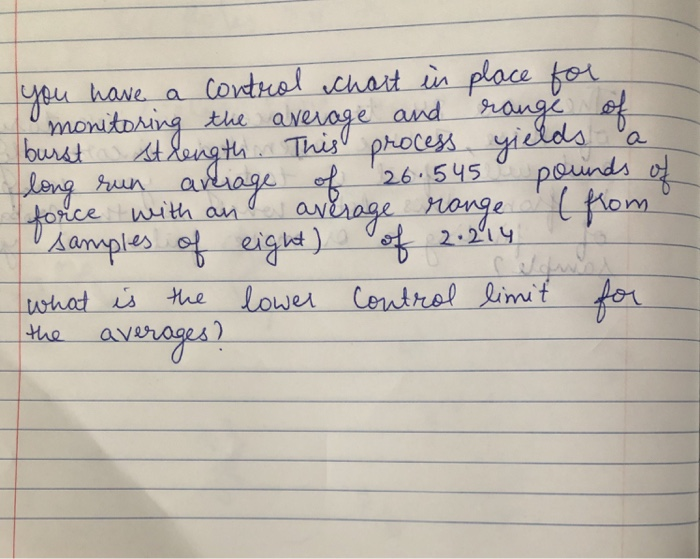 you have a control chart in place for
monitoring the average and range of
burst strength. This process yields a
long run average of 26.545 pounds of
force with an average range (from
samples of eight) of 2.214
what is the lower control limit for
the averages?